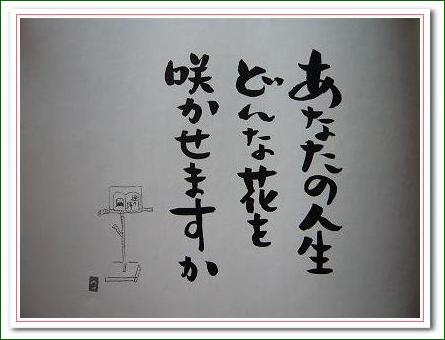 あなたの人生
どんな花を
咲かせますか